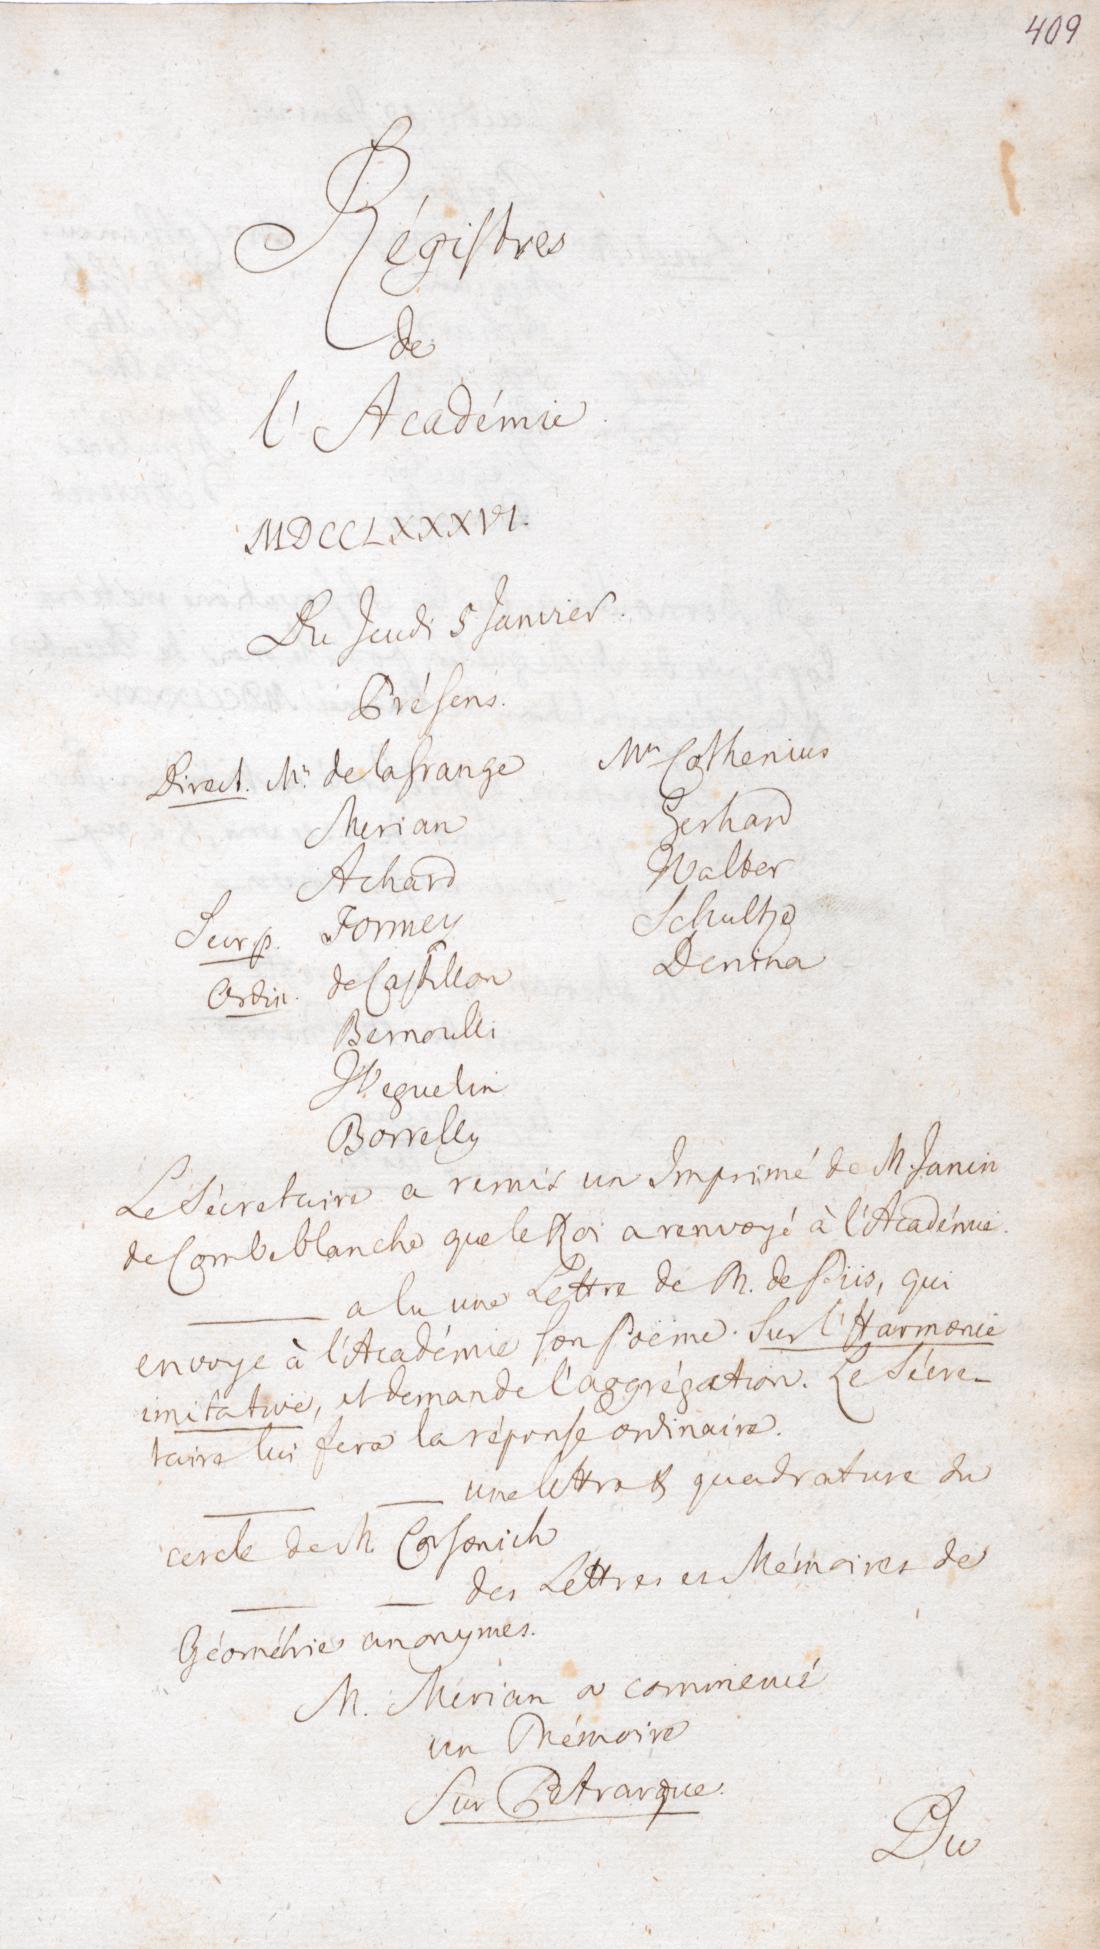 409
Régistres
de
l'Académie
MDCCLXXXVI.
Du Jeudi 5 Janvier.
Présens.
Direct. Mrs de la Grange
Merian
Achard
Secr. p. Formey
Ordin. de Castillon
Bernoulli
Weguelin
Borrelly
Mrs Cothenius
Gerhard
Walter
Schultze
Denina
Le Sécretaire a remis un Imprimé de M. Janin
de Combeblanche que le Roi a renvoyé à l'Académie.
——— a lu une Lettre de M. de Piis, qui
envoye à l'Académie son Poëme Sur l'Harmonie
imitative, et demande l'aggrégation. Le Sécre-
taire lui fera la réponse ordinaire.
——— —— une lettre & quadrature du
cercle de M. Corsonich
——— —— des Lettres et Mémoires de
Géométrie anonymes.
M. Mérian a commencé
un Mémoire
Sur Petrarque.
Du